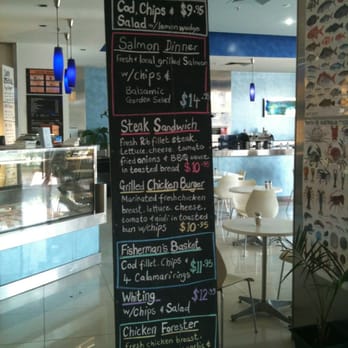 Cod, Chips & $9.95
Salad w/lemon wedge
Salmon Dinner
Fresh & local grilled Salmon
w/chips &
Balsamic
Garden Salad $14
Steak Sandwich
Fresh Rib fillet steak,
lettuce, cheese, tomato
fried onions & BBQ sauce
in toasted bread $10
Grilled Chicken Burger
Marinated fresh chicken
breast, lettuce, cheese,
tomato & aioli in toasted
bun w/chips $10.95
Fisherman's Basket
Cod fillet, Chips & $11.95
4 Calamari rings
Whiting $12
w/Chips & Salad
Chicken Forester
fresh chicken breast,